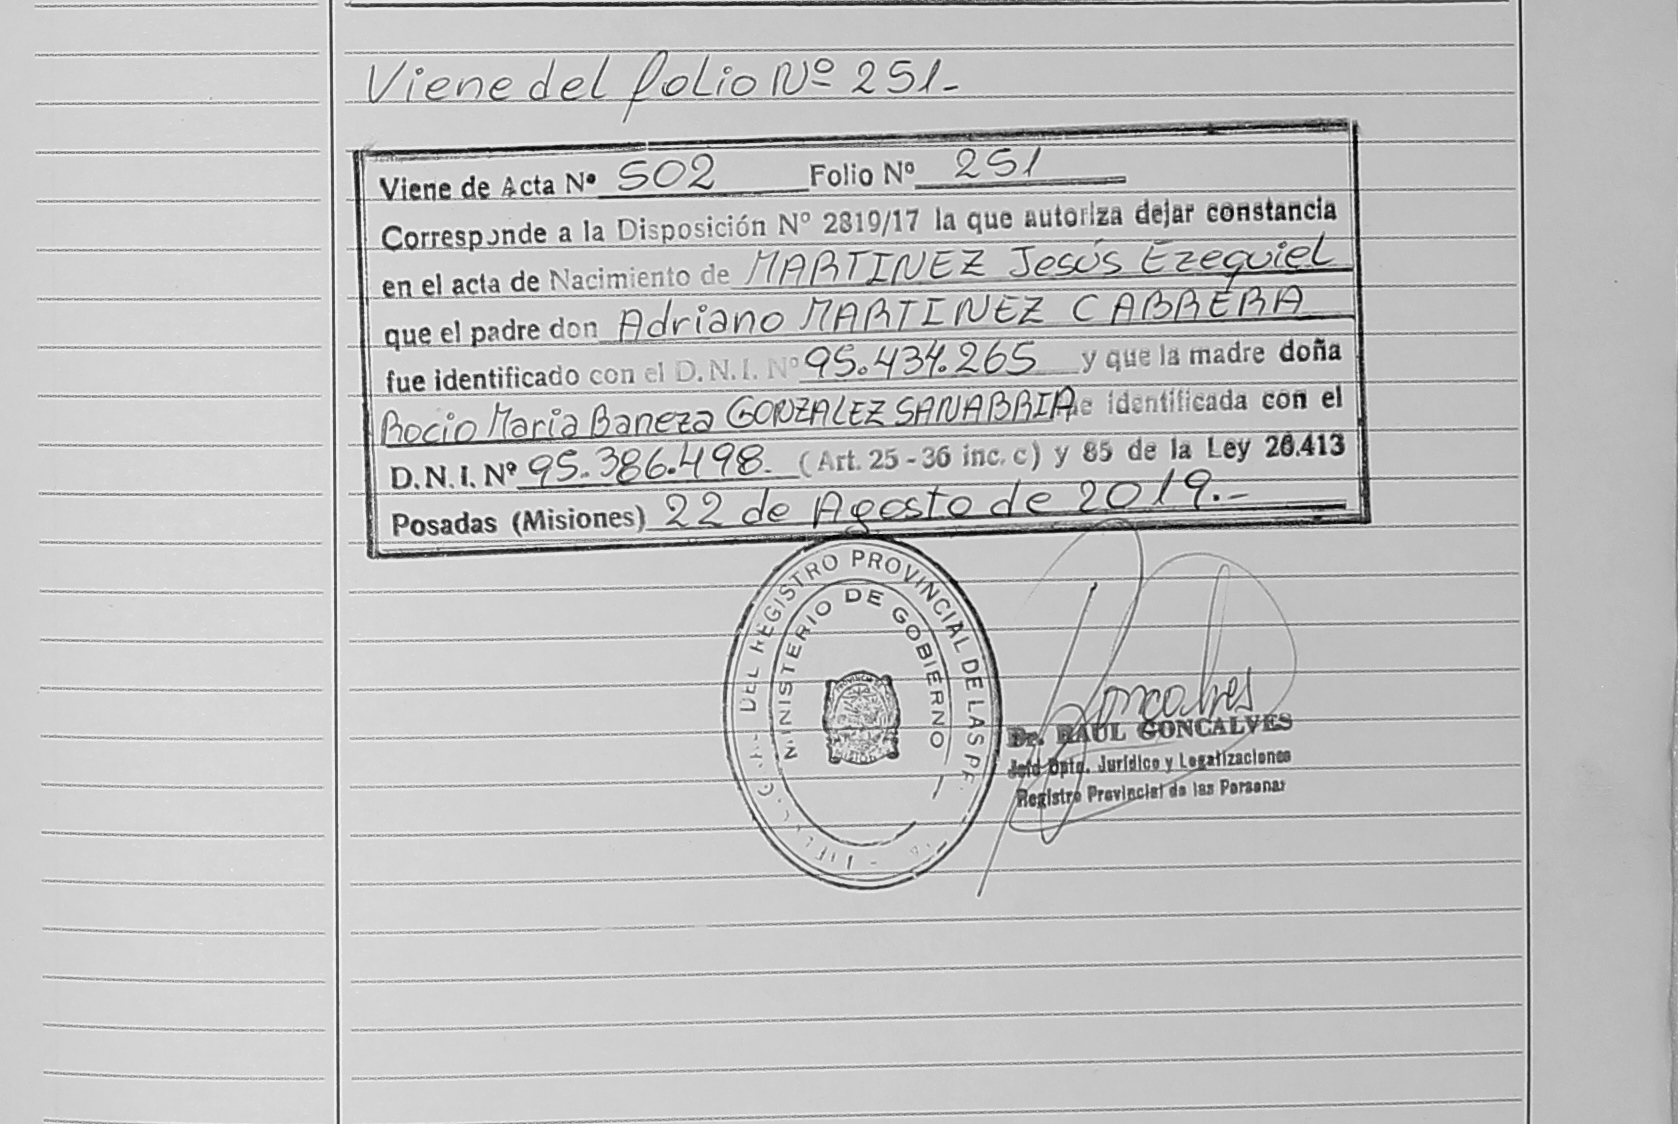 Viene del folio Nº 251.-
Viene de Acta Nº 502 Folio Nº 251
Corresponde a la Disposición Nº 2819/17 la que autoriza dejar constancia
en el acta de Nacimiento de MARTINEZ Jesús Ezequiel
que el padre don Adriano MARTINEZ CABRERA
fue identificado con el D.N.I. Nº 95.434.265 y que la madre doña
Rocio Maria Baneza GONZALEZ SANABRIA identificada con el
D.N.I. Nº 95.386.498. (Art. 25 - 36 inc. c) y 85 de la Ley 26.413
Posadas (Misiones) 22 de Agosto de 2019.-
DEL REGISTRO PROVINCIAL DE LAS
MINISTERIO DE GOBIERNO
Goncalves
Dr. RAUL GONCALVES
Jefe Dpto. Jurídico y Legalizaciones
Registro Provincial de las Personas